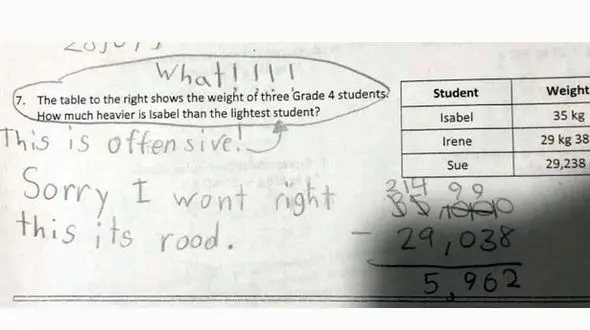 What!!!!
7. The table to the right shows the weight of three Grade 4 students.
How much heavier is Isabel than the lightest student?
This is offensive!
Sorry I wont right
this its rood.
Student Weight
Isabel 35 kg
Irene 29 kg 38
Sue 29,238
3 14 9 9
35
- 29,038
5,962